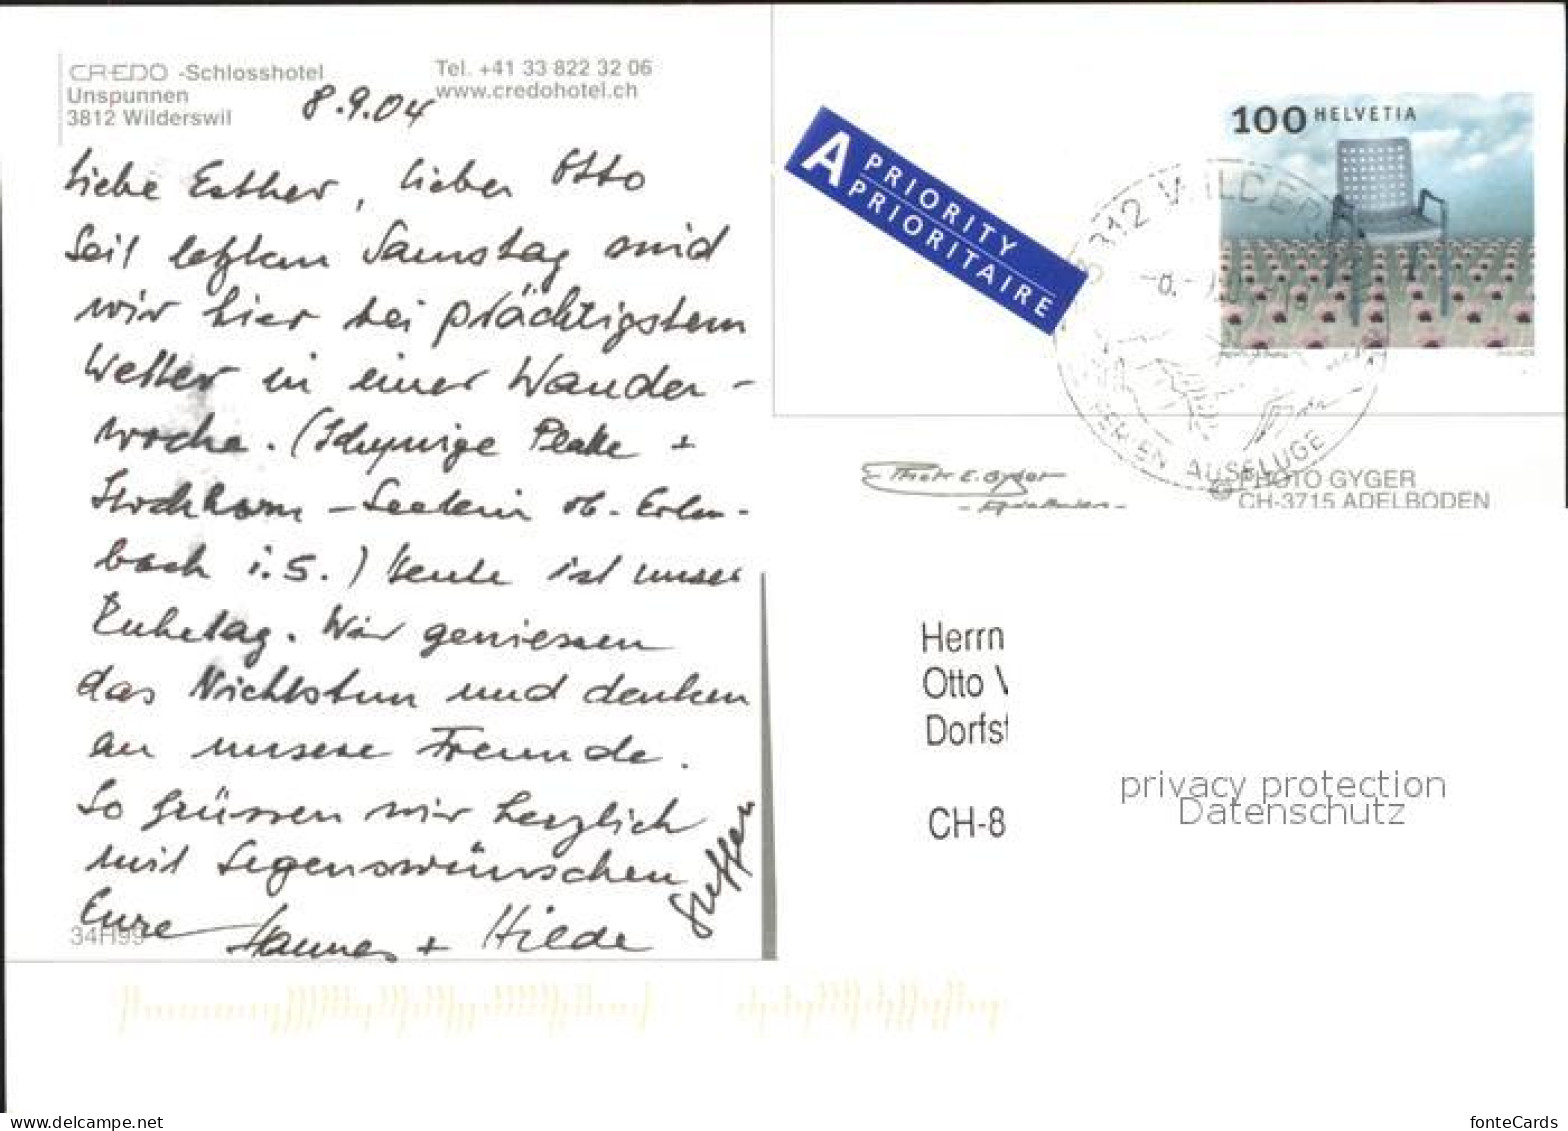 CREDO -Schlosshotel
Unspunnen
3812 Wilderswil
Tel. +41 33 822 32 06
www.credohotel.ch
8.9.04
Liebe Esther, lieber Otto
Seit letztem Samstag sind
wir hier bei prächtigstem
Wetter in einer Wander-
woche. (Schynige Platte +
Stockhorn - Seelein ob. Erlen-
bach i.S.) Heute ist unser
Ruhetag. Wir geniessen
das Nichtstun und denken
an unsere Freunde.
So grüssen wir herzlich
mit Segenswünschen
Eure Hannes + Hilde
34H99
A PRIORITY
PRIORITAIRE
100 HELVETIA
3812 WILDER
FERIEN AUSFLUGE
Photo E. Gyger
- Adelboden -
© PHOTO GYGER
CH-3715 ADELBODEN
Herrn
Otto
Dorfst
CH-8
privacy protection
Datenschutz
www.delcampe.net
fonteCards